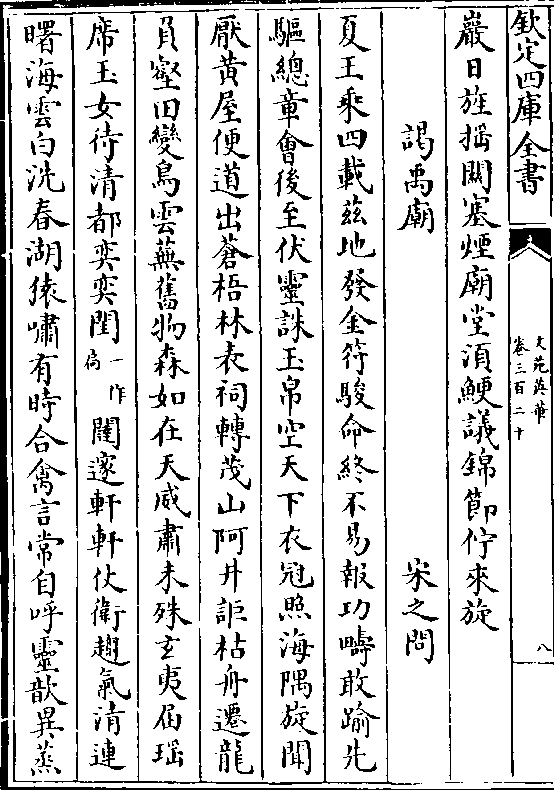 欽定四庫全書
文苑英華
卷三百二十
八
巖日旌摇關塞煙廟堂湏鯁議錦節佇來旋
謁禹廟
宋之問
夏王乘四載兹地發金符駿命終不易報功疇敢踰先
驅總章會後至伏靈誅玉帛空天下衣冠照海隅旋聞
厭黄屋便道出蒼梧林表祠轉茂山阿井詎枯舟遷龍
負壑田變鳥雲蕪舊物森如在天威肅未殊玄夷届瑶
席玉女待清都奕奕閨一作扃闥邃軒軒仗衛趨氣清連
曙海雲白洗春湖猿嘯有時合禽言常自呼靈歆異蒸